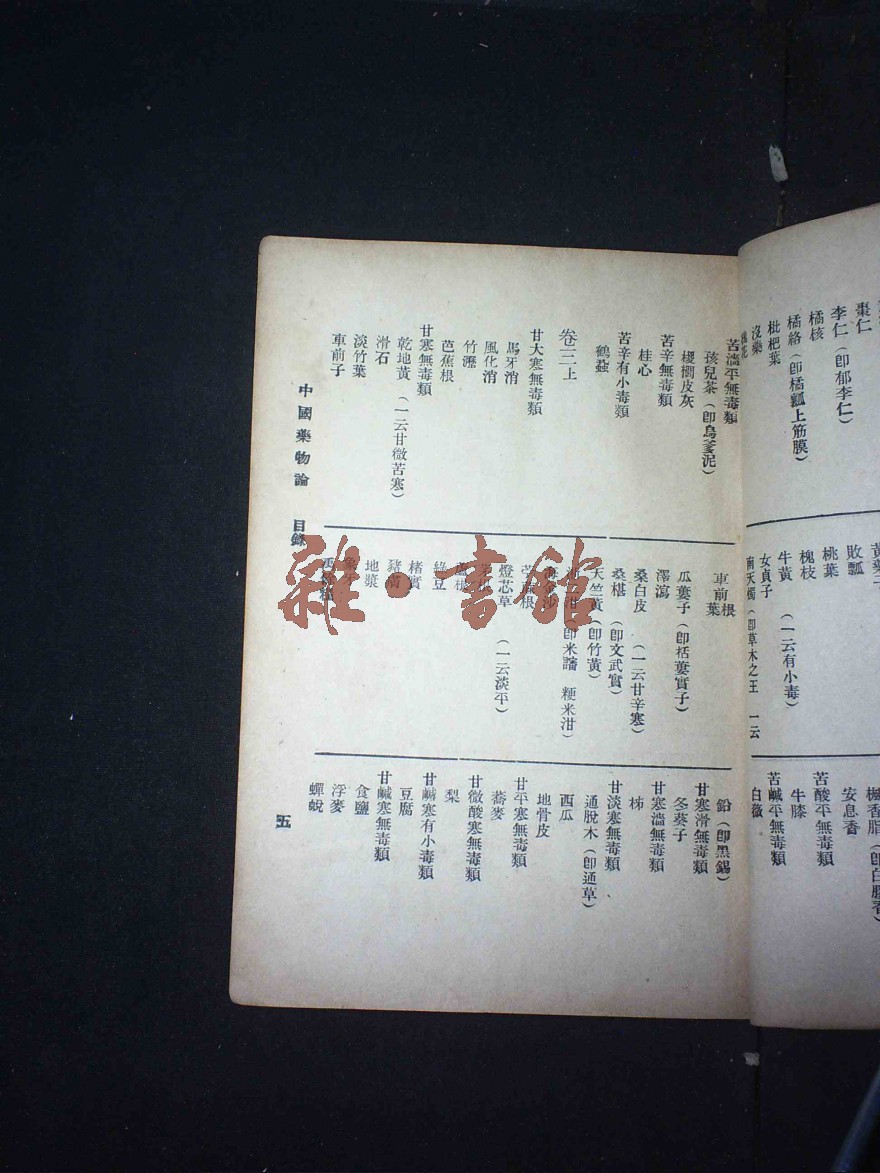 棗仁
李仁(卽郁李仁)
橘核
橘絡(卽橘瓤上筋膜)
枇杷葉
沒藥
敗瓢
桃葉
槐枝
牛黃(一云有小毒)
女貞子
南天燭(卽草木之王 一云
楓香脂(卽白膠香)
安息香
苦酸平無毒類
牛膝
苦鹹平無毒類
白薇
苦濇平無毒類
孩兒茶(卽烏爹泥)
椶櫚皮灰
苦辛無毒類
桂心
苦辛有小毒類
鶴蝨
卷三上
甘大寒無毒類
馬牙消
風化消
竹瀝
芭蕉根
甘寒無毒類
乾地黃(一云甘微苦寒)
滑石
淡竹葉
車前子
車前根葉
澤瀉
瓜蔞子(卽栝蔞實子)
桑白皮(一云甘辛寒)
桑椹(卽文武實)
天竺黃(卽竹黃)
泔(卽米瀋 粳米泔)
海金沙
燈芯草(一云淡平)
綠豆
楮實
地漿
鉛(卽黑錫)
甘寒滑無毒類
冬葵子
甘寒濇無毒類
柿
甘淡寒無毒類
通脫木(卽通草)
西瓜
地骨皮
甘平寒無毒類
蕎麥
甘微酸寒無毒類
梨
甘鹹寒有小毒類
豆腐
甘鹹寒無毒類
食鹽
浮麥
蟬蛻
中國藥物論 目錄
五
雜·書館